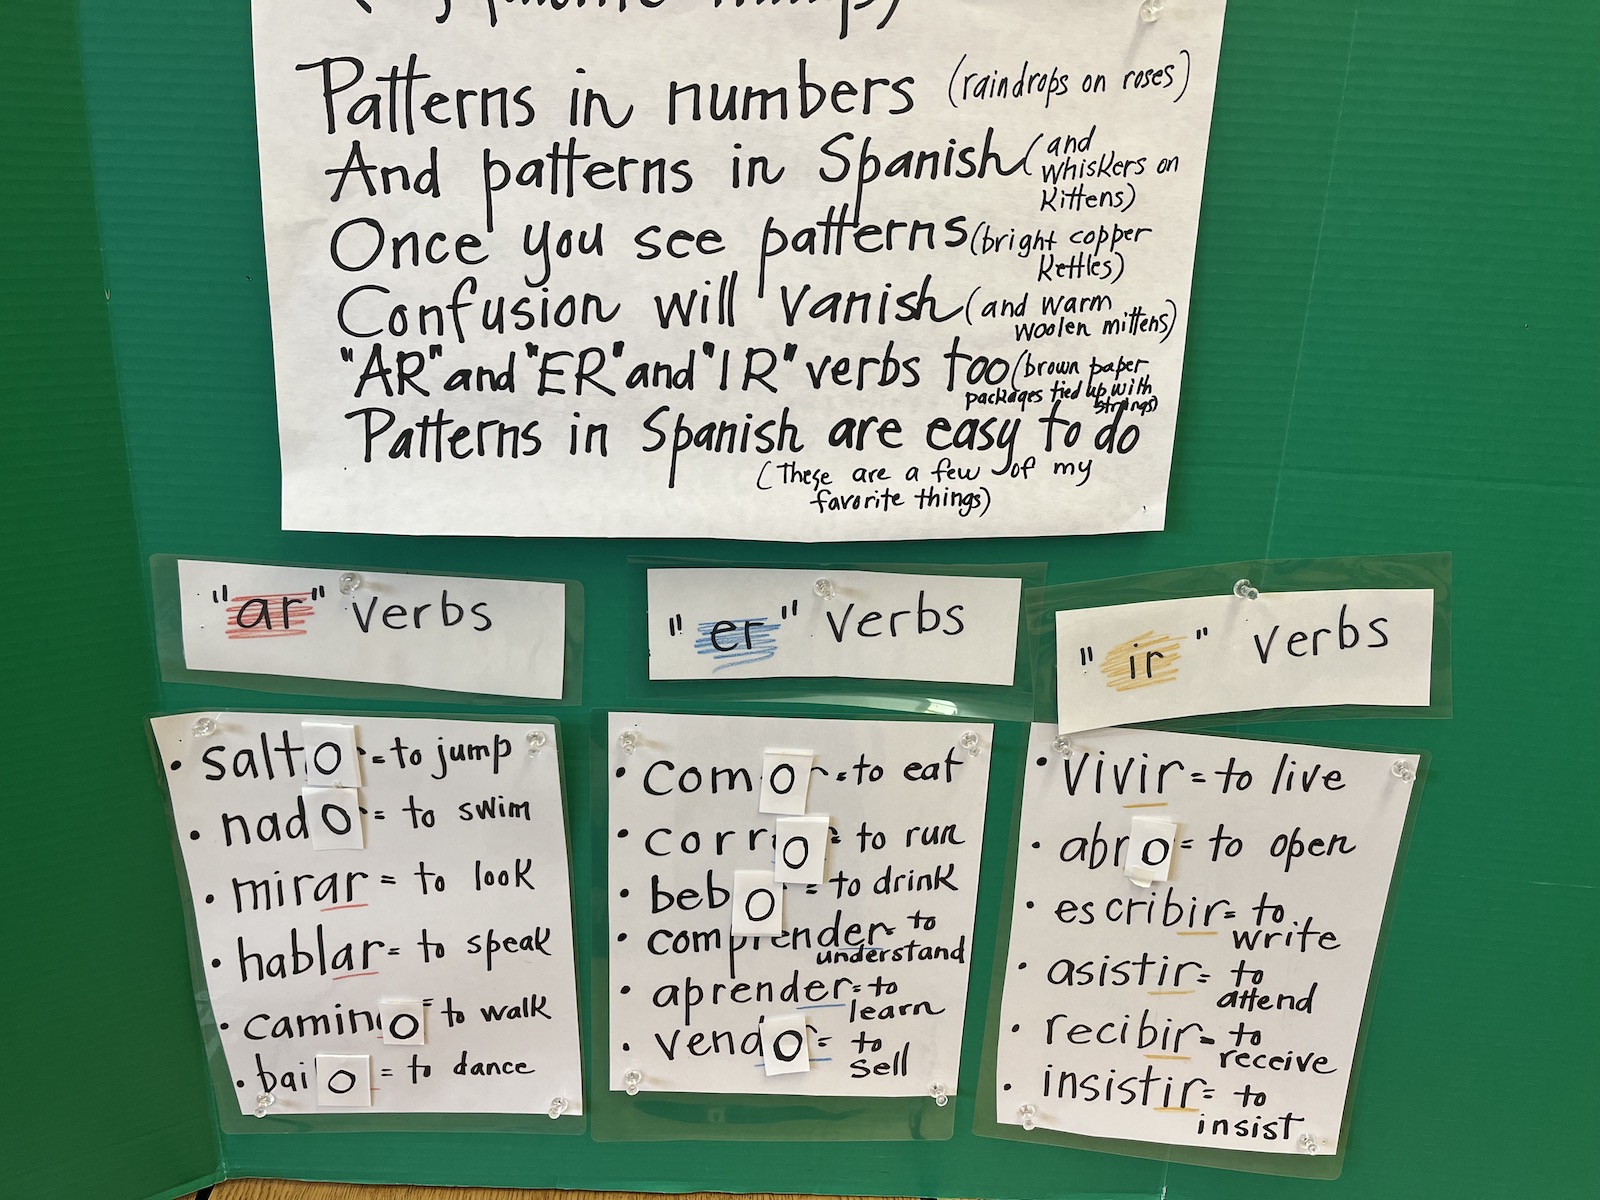 favorite things)
Patterns in numbers (raindrops on roses)
And patterns in Spanish (and whiskers on kittens)
Once you see patterns (bright copper kettles)
Confusion will vanish (and warm woolen mittens)
"AR" and "ER" and "IR" verbs too (brown paper packages tied up with strings)
Patterns in Spanish are easy to do
(These are a few of my
favorite things)
"ar" verbs
• salto = to jump
• nado = to swim
• mirar = to look
• hablar = to speak
• camino = to walk
• bailo = to dance
"er" verbs
• como = to eat
• corro = to run
• bebo = to drink
• comprender = to understand
• aprender = to learn
• vendo = to sell
"ir" verbs
• vivir = to live
• abro = to open
• escribir = to write
• asistir = to attend
• recibir = to receive
• insistir = to insist